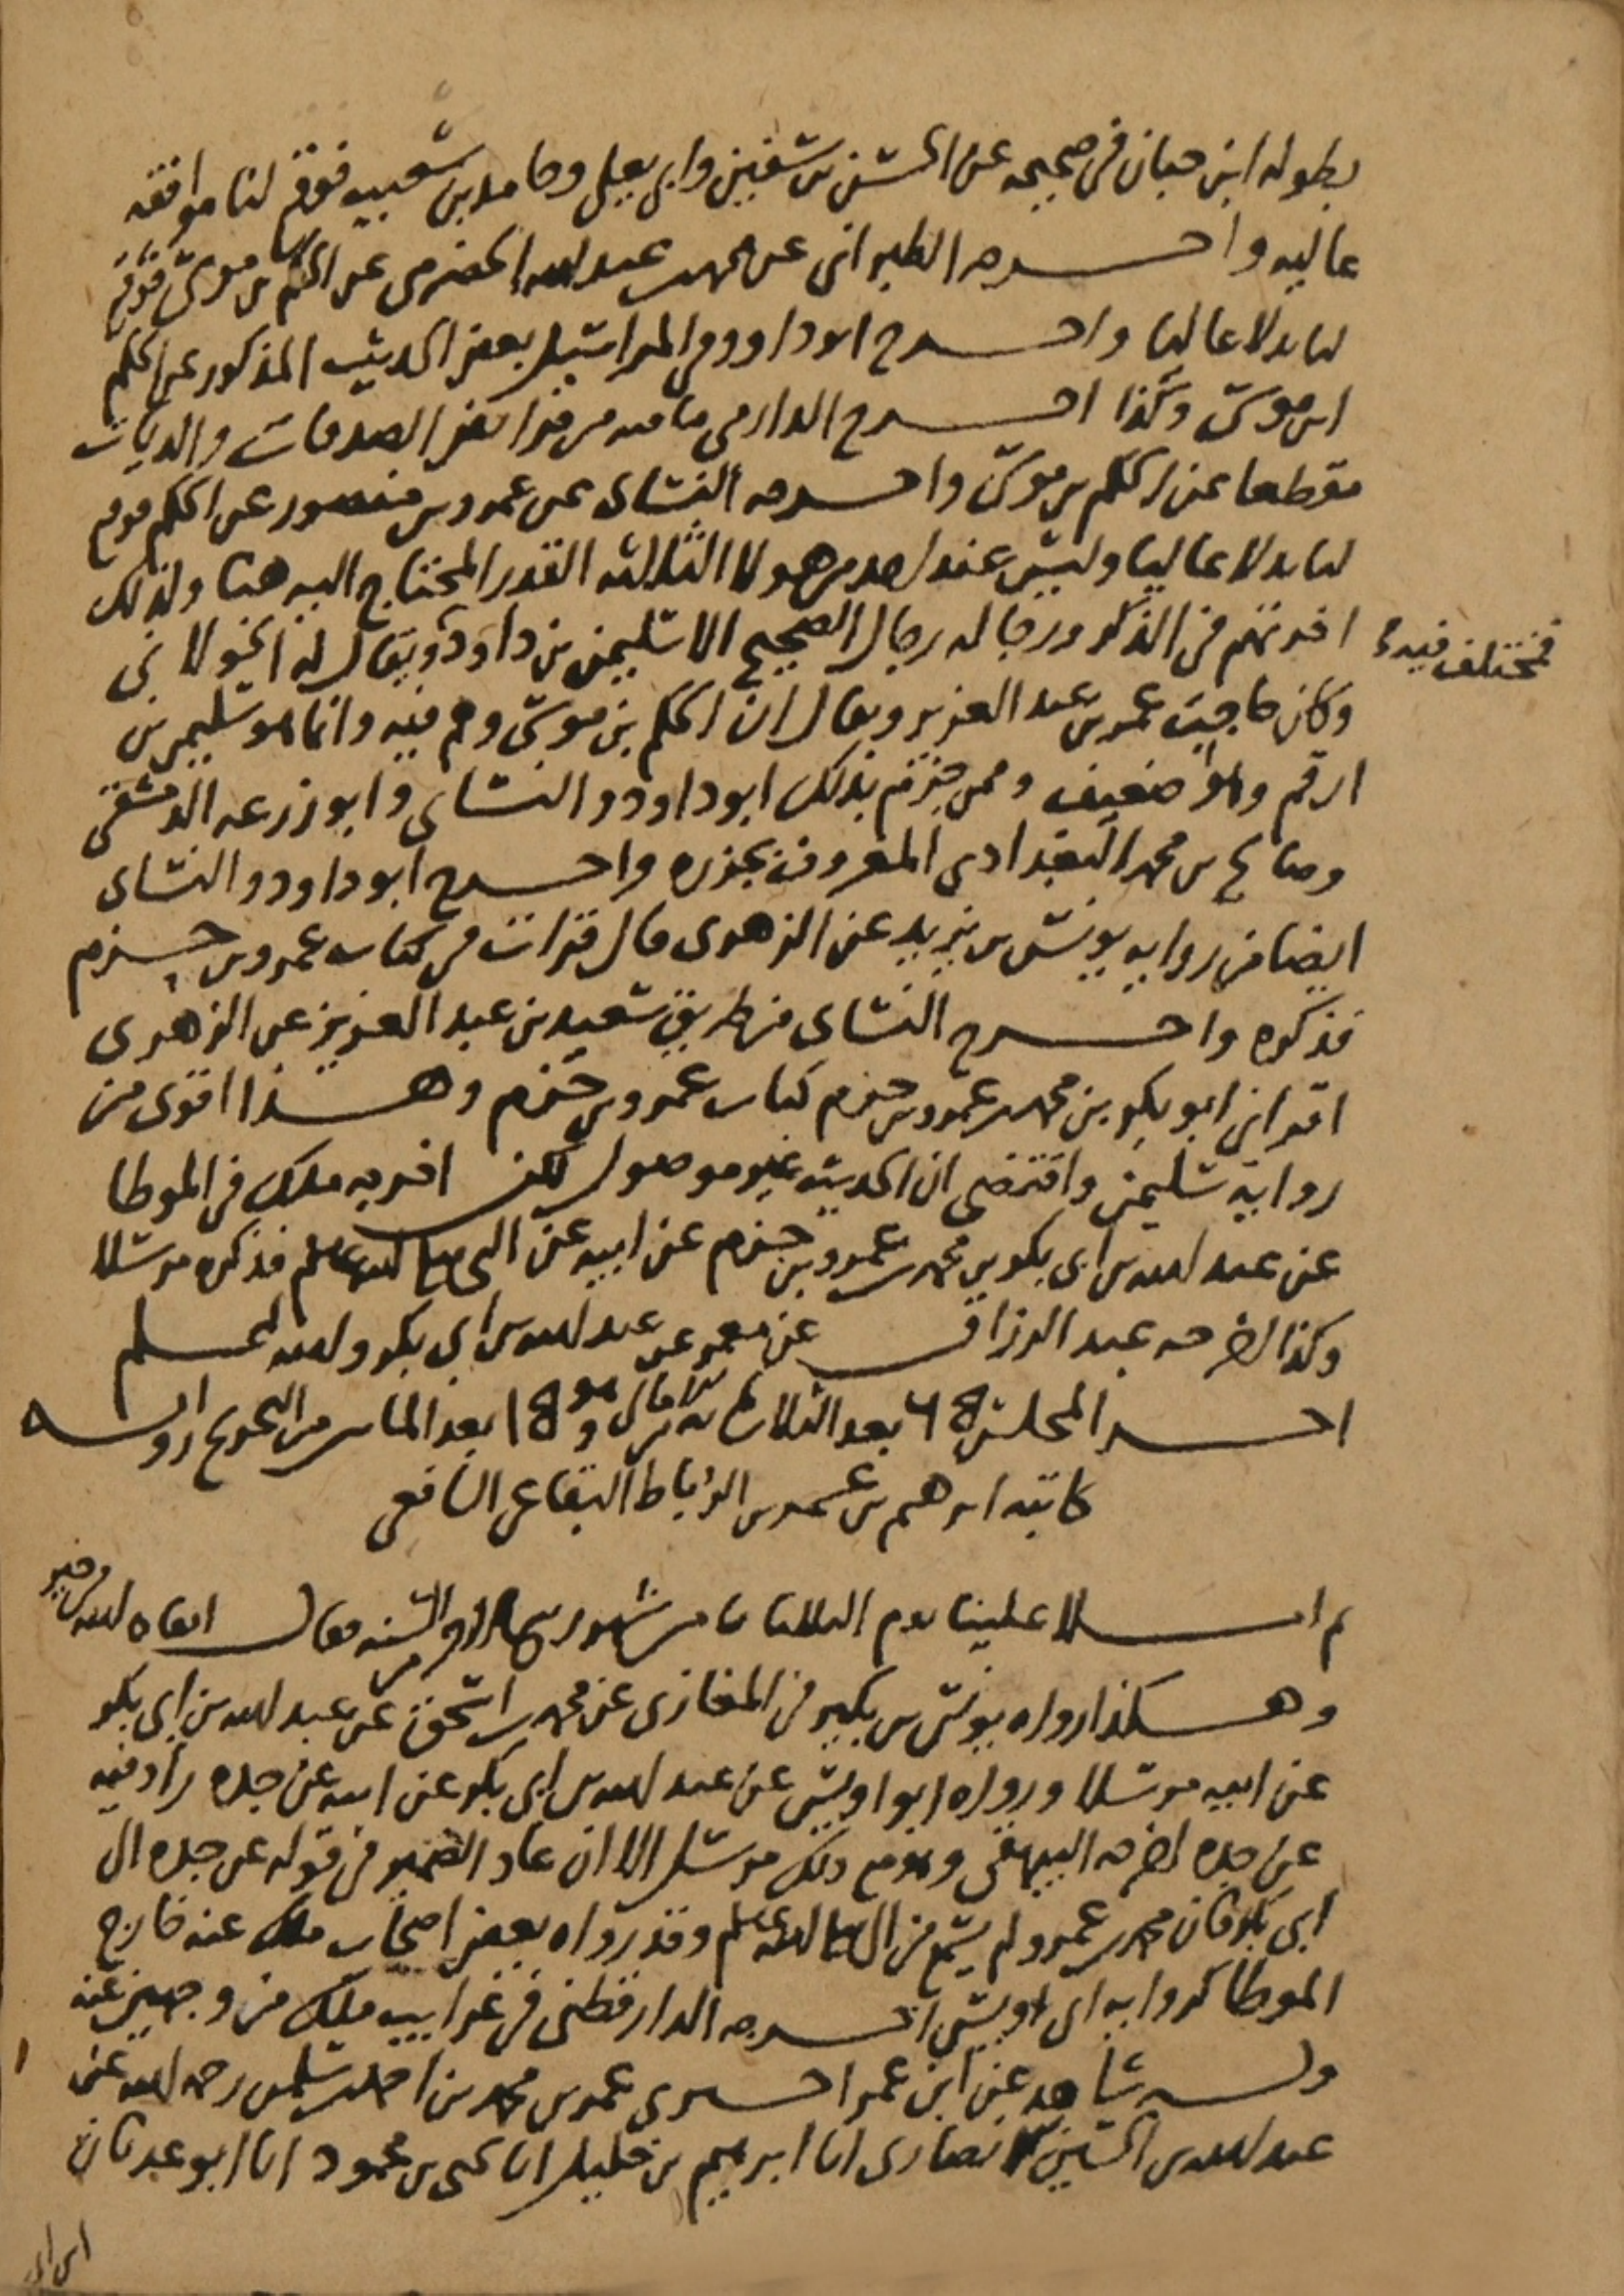 بطوله ابن حبان في صحيحه عن الحسن بن سفين وابي يعلى وحامد بن شعيب فوقع لنا موافقه
عاليه واخرجه الطبراني عن محمد بن عبد الله الحضرمي عن الحكم بن موسى فوقع
لنا بدلا عاليا واخرج ابو داود في المراسيل بعض الحديث المذكور عن الحكم
ابن موسى وكذا اخرج الدارمي ما فيه من فرائض الصدقات والديات
مقطعا عن الحكم بن موسى واخرجه النسائي عن عمرو بن منصور عن الحكم فوقع
لنا بدلا عاليا وليس عند احد من هولا الثلاثه القدر المحتاج اليه هنا ولذلك
اخرتهم في الذكر ورجاله رجال الصحيح الا سليمن بن داود ويقال له الخولاني
فمختلف فيه
وكان حاجب عمر بن عبد العزيز ويقال ان الحكم بن موسى وهم فيه وانما هو سليمن بن
ارقم وهو ضعيف وممن جزم بذلك ابو داود والنسائي وابو زرعه الدمشقي
وصالح بن محمد البغدادي المعروف بجزره واخرج ابو داود والنسائي
ايضا من روايه يونس بن يزيد عن الزهري قال قرات في كتاب عمرو بن حزم
فذكره واخرج النسائي من طريق سعيد بن عبد العزيز عن الزهري
اقراني ابو بكر بن محمد بن عمرو بن حزم كتاب عمرو بن حزم وهذا اقوى من
رواية سليمن واقتضى ان الحديث غير موصول لكن اخرجه ملك في الموطا
عن عبد الله بن ابي بكر بن محمد بن عمرو بن حزم عن ابيه عن النبي صلى الله عليه وسلم فذكره مرسلا
وكذا اخرجه عبد الرزاق عن معمر عن عبد الله بن ابي بكر والله اعلم
اخر المجلس بعد الثلاث بعد الما من التخريج رواية
كاتبه ابرهيم بن عمر بن الرباط البقاعي الشافعي
ثم املا علينا يوم الثلاثا من شهور السنه فقال ابقاه الله في خير
وهكذا رواه يونس بن بكير في المغازي عن محمد بن اسحق عن عبد الله بن ابي بكر
عن ابيه مرسلا ورواه ابو اويس عن عبد الله بن ابي بكر عن ابيه عن جده زاد فيه
عن جده اخرجه البيهقي وهو مع ذلك مرسل الا ان عاد الضمير في قوله عن جده الى
ابي بكر فان محمد بن عمرو لم يسمع من النبي صلى الله عليه وسلم وقد رواه بعض اصحاب ملك عنه خارج
الموطا كروايه ابي اويس اخرجه الدارقطني في غرايب ملك من وجهين عنه
وله شاهد عن ابن عمر اخبرني عمر بن محمد بن احمد بن سلمن رحمه الله عن
عبد الله بن الحسين الانصاري انا ابرهيم بن خليل انا يحيى بن محمود انا ابو عدنان